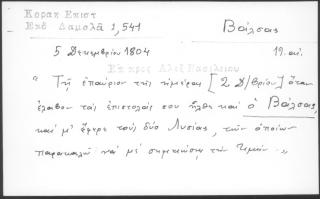 Κοραη Επιστ
Εκδ Δαμαλᾶ 1,541
Βάλσας
5 Δεκεμβρίου 1804
19. αἰ.
Ἐπ πρὸς Ἀλεξ Βασιλείου
" Τῇ ἐπαύριον τῆς ἡμέρας [2 Δ/βρίου] ὅταν
ἔλαβον τὰς ἐπιστολάς σου ἦλθε καὶ ὁ Βάλσας,
καὶ μ' ἔφερε τοὺς δύο Λυσίας, τῶν ὁποίων
παρακαλῶ νὰ μὲ σημειώσῃς τὴν τιμήν. "